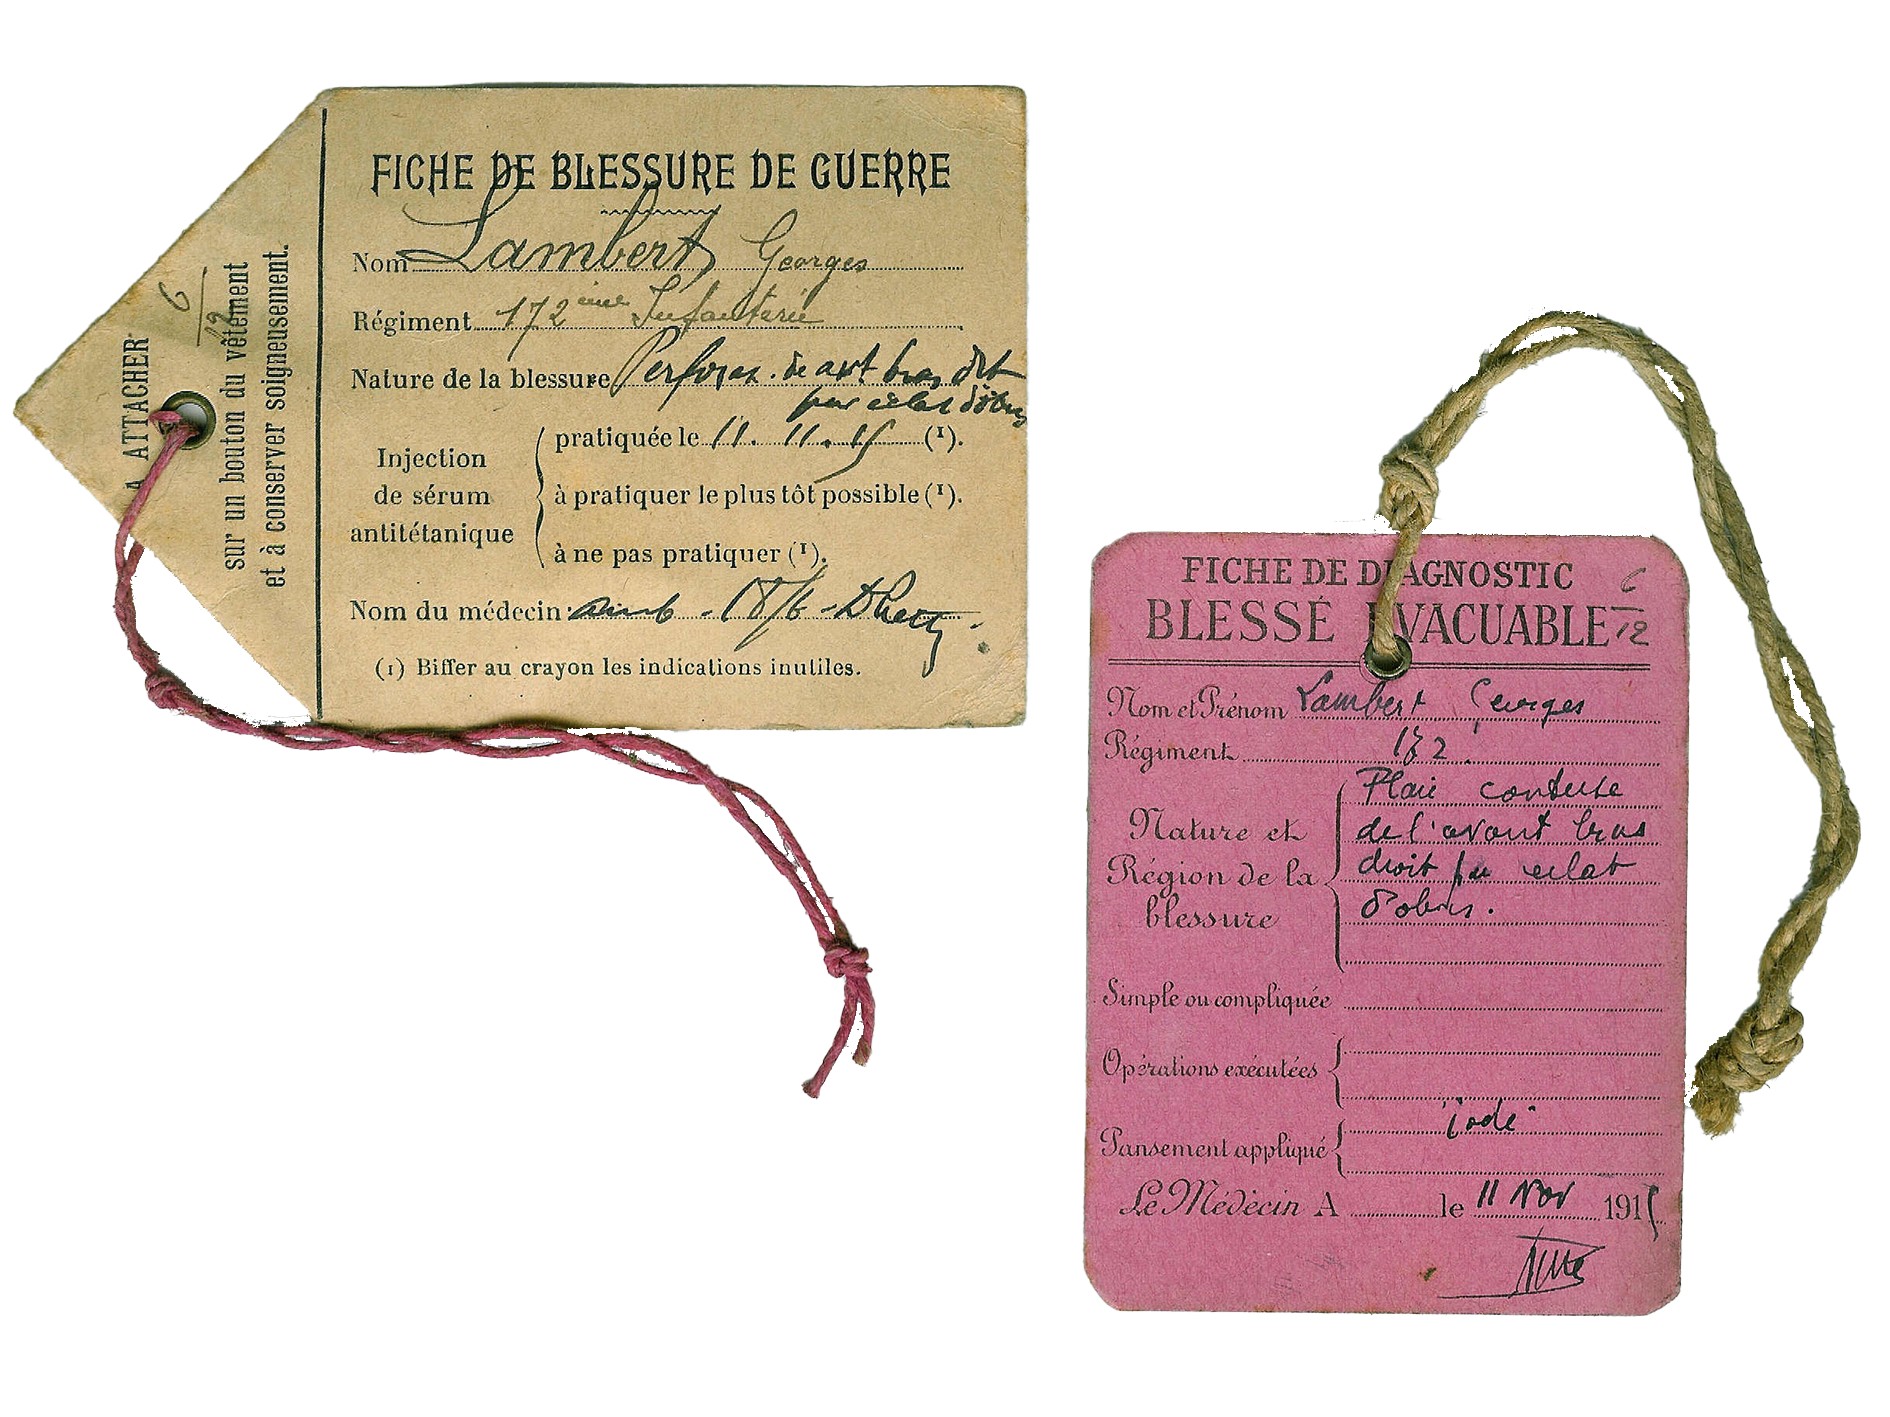 FICHE DE BLESSURE DE GUERRE
Nom Lambert Georges
Régiment 172ème Infanterie
Nature de la blessure Perforat. de avt bras drt
par éclat d'obus
Injection
de sérum
antitétanique
pratiquée le 11. 11. 15 (1).
à pratiquer le plus tôt possible (1).
à ne pas pratiquer (1).
Nom du médecin: amb - 18/6 -
(1) Biffer au crayon les indications inutiles.
A ATTACHER
sur un bouton du vêtement
et à conserver soigneusement.
6
12
FICHE DE DIAGNOSTIC
BLESSÉ EVACUABLE
6
12
Nom et Prénom Lambert Georges
Régiment 172
Nature et
Région de la
blessure
Plaie contuse
de l'avant bras
droit par eclat
d'obus.
Simple ou compliquée
Opérations exécutées
Pansement appliqué
iode
Le Médecin A le 11 Nov 1915